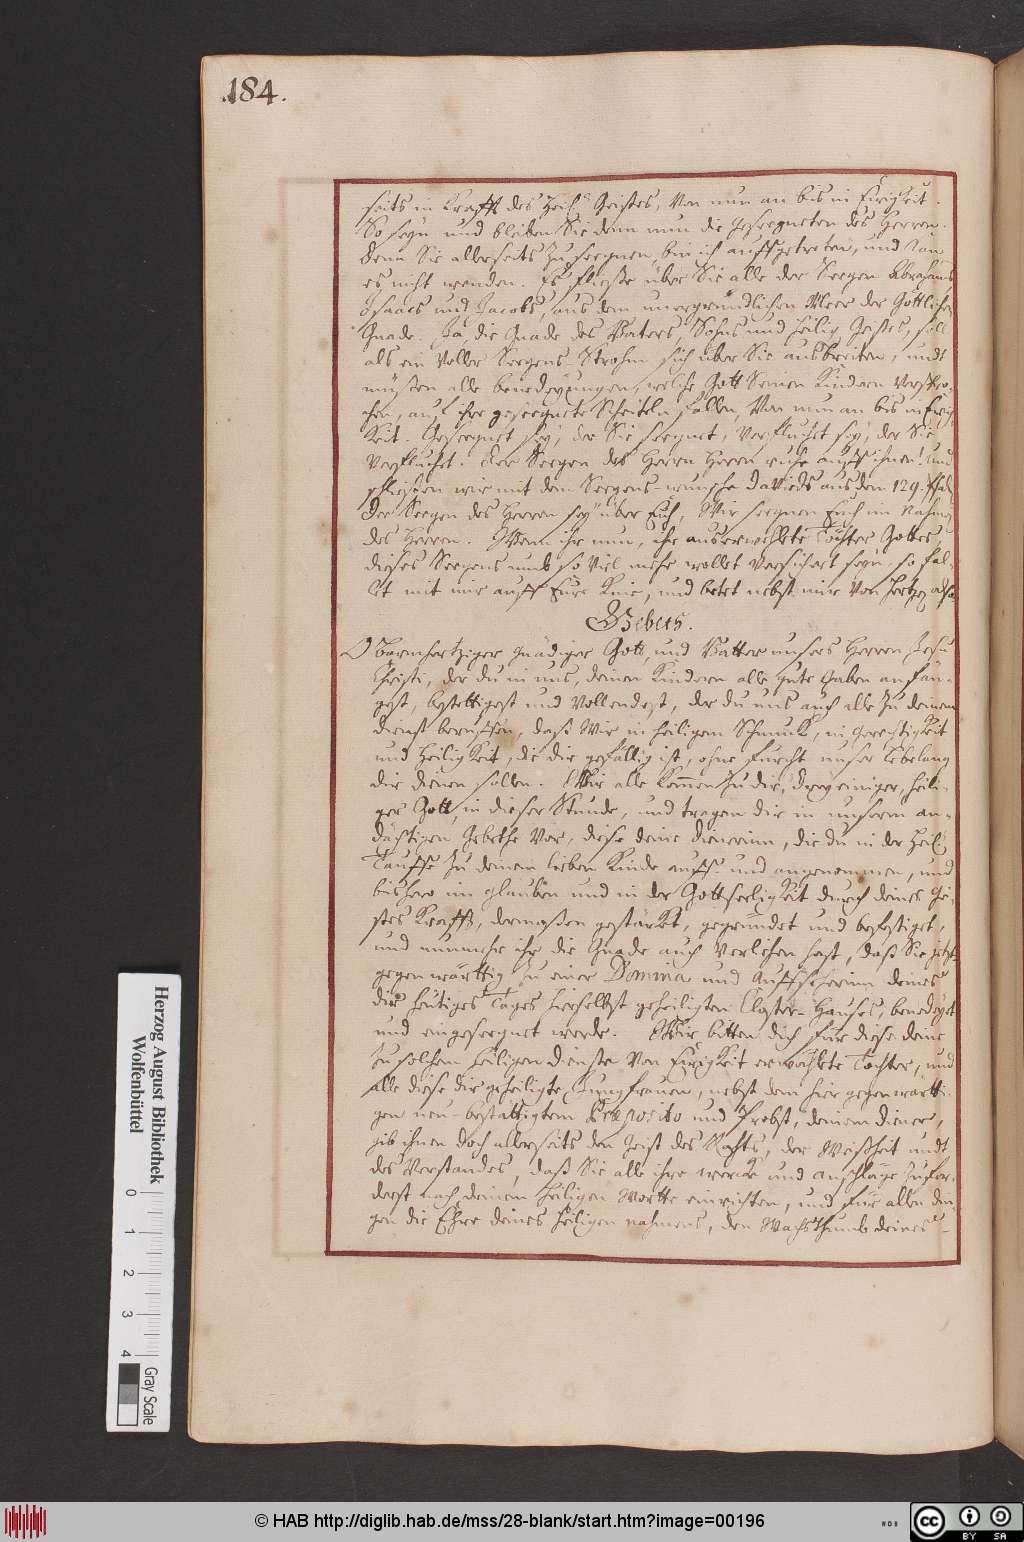 184.
seits in Krafft des Heil. Geistes, Von nun an bis in Ewigkeit.
So seyn und bleiben Sie denn nun die Geseegneten des Herren.
Denn Sie allerseits zu seegnen bin ich auffgetreten, und kan
es nicht wenden. Es fließe über Sie alle der Seegen Abrahams
Isaacs und Jacobs, aus dem unergründlichen Meer der Göttlichen
Gnade. Ja, die Gnade des Vaters, Sohns und heilig. Geistes, soll
als ein Voller Seegens-Strohm sich über Sie ausbreiten, undt
müßen alle benedeyungen, welche Gott Seinen Kindern verspro-
chen, auf ihre geseegnete Scheiteln fallen, Von nun an bis in Ewig-
keit. Geseegnet sey, der Sie seegnet, Verflucht sey, der Sie
Verflucht. Der Seegen des Herrn Herrn ruhe auff ihnen! Und
schließen wir mit dem Seegens-wunsche Davids aus dem 129. Psal.
Der Seegen des Herren sey über Euch, Wir seegnen Euch im Nahmen
des Herren. Wenn ihr nun, ihr auserwehlte Töchter Gottes,
dieses Seegens umb so viel mehr wollet versichert seyn, so fal-
let mit mir auff Eure Knie, und betet nebst mir von Hertzen also
Gebeth.
O Barmhertziger Gnädiger Gott, und Vatter unsers Herren Jesu
Christi, der du in uns, deinen Kindern alle gute Gaben anfän-
gest, bestettigest und vollendest, der du uns auch alle zu deinem
dienst beruffen, daß Wir in heiligem Schmuck, in Gerechtigkeit
und Heiligkeit, die dir gefällig ist, ohne furcht unser Lebelang
dir dienen sollen. Wir alle kommen zu dir, dreyeiniger, heili-
ger Gott, in dieser Stunde, und tragen dir in unserm an-
dächtigen Gebethe vor, diese deine dienerinn, die du in der Heil.
Tauffe zu deinem lieben Kinde auff- und angenommen, und
bishero im glauben und in der Gottseeligkeit durch deines Gei-
stes Krafft, dermaßen gestärket, gegründet und befestiget,
und nunmehr ihr die Gnade auch verliehen hast, daß Sie jetzt-
gegenwärttig zu einer Domina und Auffseherinn deines
dir heutiges Tages hierselbst geheiligten Closter-Hauses, benedeyet
und eingeseegnet werde. Wir bitten dich für diese deine
zu solchem heiligen dienste von Ewigkeit erwählte Tochter, und
alle diese dir geheiligte Jungfrauen, nebst dem hier gegenwärtti-
gen neu-bestättigtem Praeposito und Probst, deinem diener,
gib ihnen doch allerseits den Geist des Rahts, der Weißheit undt
des Verstandes, daß Sie alle ihre wercke und anschläge zufor-
derst nach deinem heiligen Wortte einrichten, und für allen din-
gen die Ehre deines heiligen nahmens, den Wachsthumb deines
Herzog August Bibliothek
Wolfenbüttel
0 1 2 3 4
Gray Scale
© HAB http://diglib.hab.de/mss/28-blank/start.htm?image=00196
WDB
cc BY SA